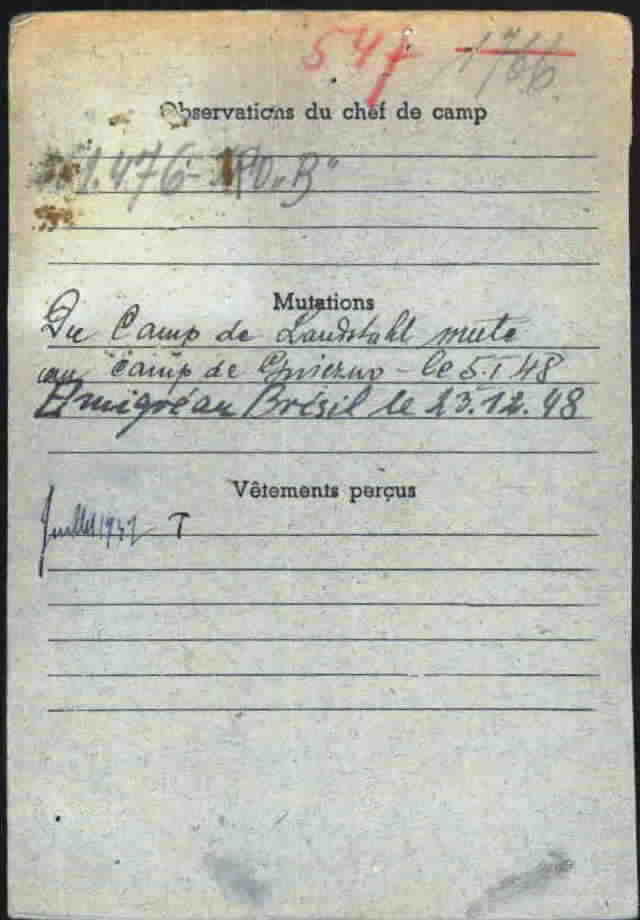 547 1766
Observations du chef de camp
1.476- "B"
Mutations
Du Camp de Landstuhl mute
au camp de Gniezno - le 5.I 48
Emigré au Brésil le 23.12.48
Vêtements perçus
Juillet 1947 T